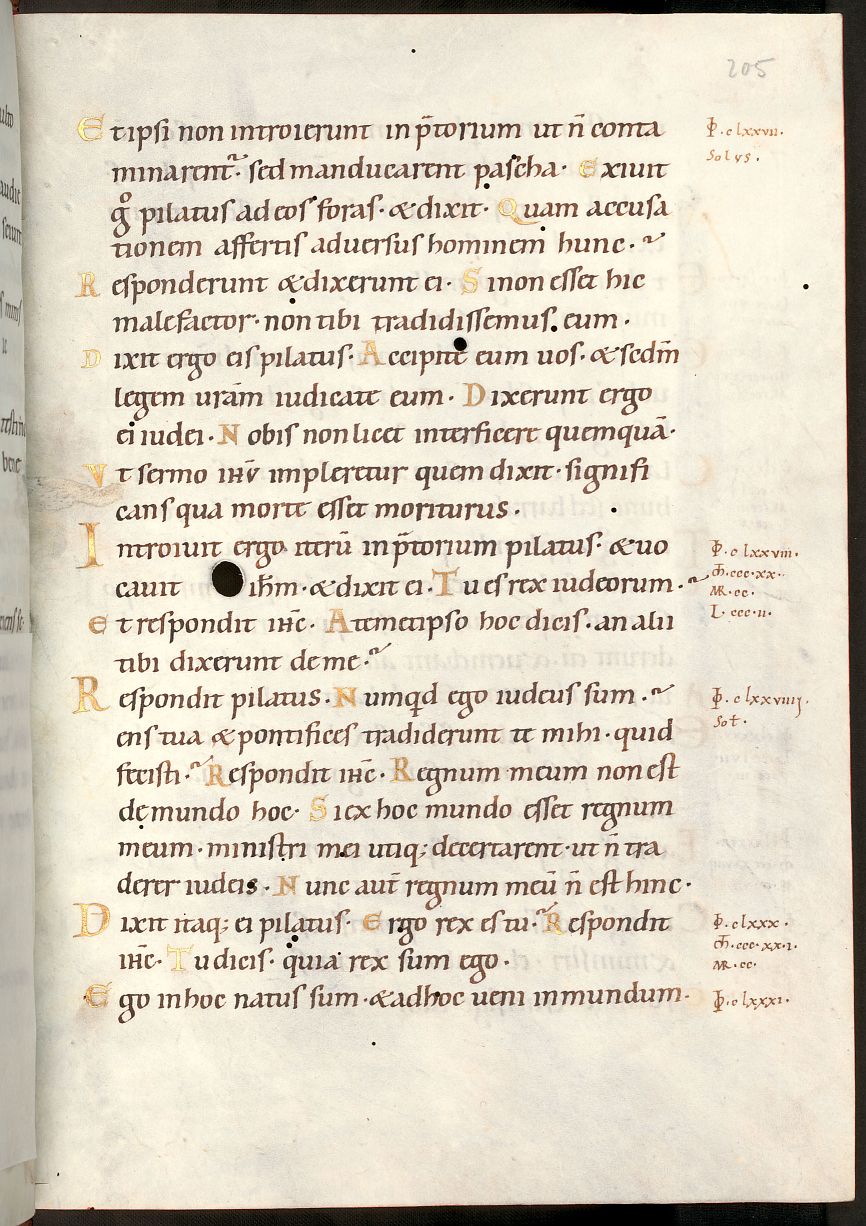 205
Et ipsi non introierunt in p̄torium ut n̄ conta
minarent᷑. sed manducarent pascha. Exiuit
gͦ pilatus ad eos foras. & dixit. Quam accusa
tionem affertis aduersus hominem hunc.
Responderunt & dixerunt ei. Si non esset hic
malefactor. non tibi tradidissemus eum.
Dixit ergo eis pilatus. Accipite eum uos. & sedm̄
legem urām iudicate eum. Dixerunt ergo
ei iudei. Nobis non licet interficere quemquā.
Vt sermo ihu̅ impleretur quem dixit. signifi
cans qua morte esset moriturus.
Introiuit ergo iterū in p̄torium pilatus. & uo
cauit ihm̄. & dixit ei. Tu es rex iudeorum.
Et respondit ihc̄. A temetipso hoc dicis. an alii
tibi dixerunt de me.
Respondit pilatus. Numqd ego iudeus sum.
ens tua & pontifices tradiderunt te mihi. quid
fecisti. Respondit ihc̄. Regnum meum non est
de mundo hoc. Si ex hoc mundo esset regnum
meum. ministri mei utiq; decertarent. ut n̄ tra
derer iudeis. Nunc aut̄ regnum meū n̄ est hinc.
Dixit itaq; ei pilatus. Ergo rex es tu. Respondit
ihc̄. Tu dicis. quia rex sum ego.
Ego in hoc natus sum. & ad hoc ueni in mundum.
clxxvii.
Solus.
clxxviii.
ccc.xx.
MR.cc.
L.ccc.ii.
clxxviiij.
Sol.
clxxx.
ccc.xx.i.
MR.cc.
clxxxi.